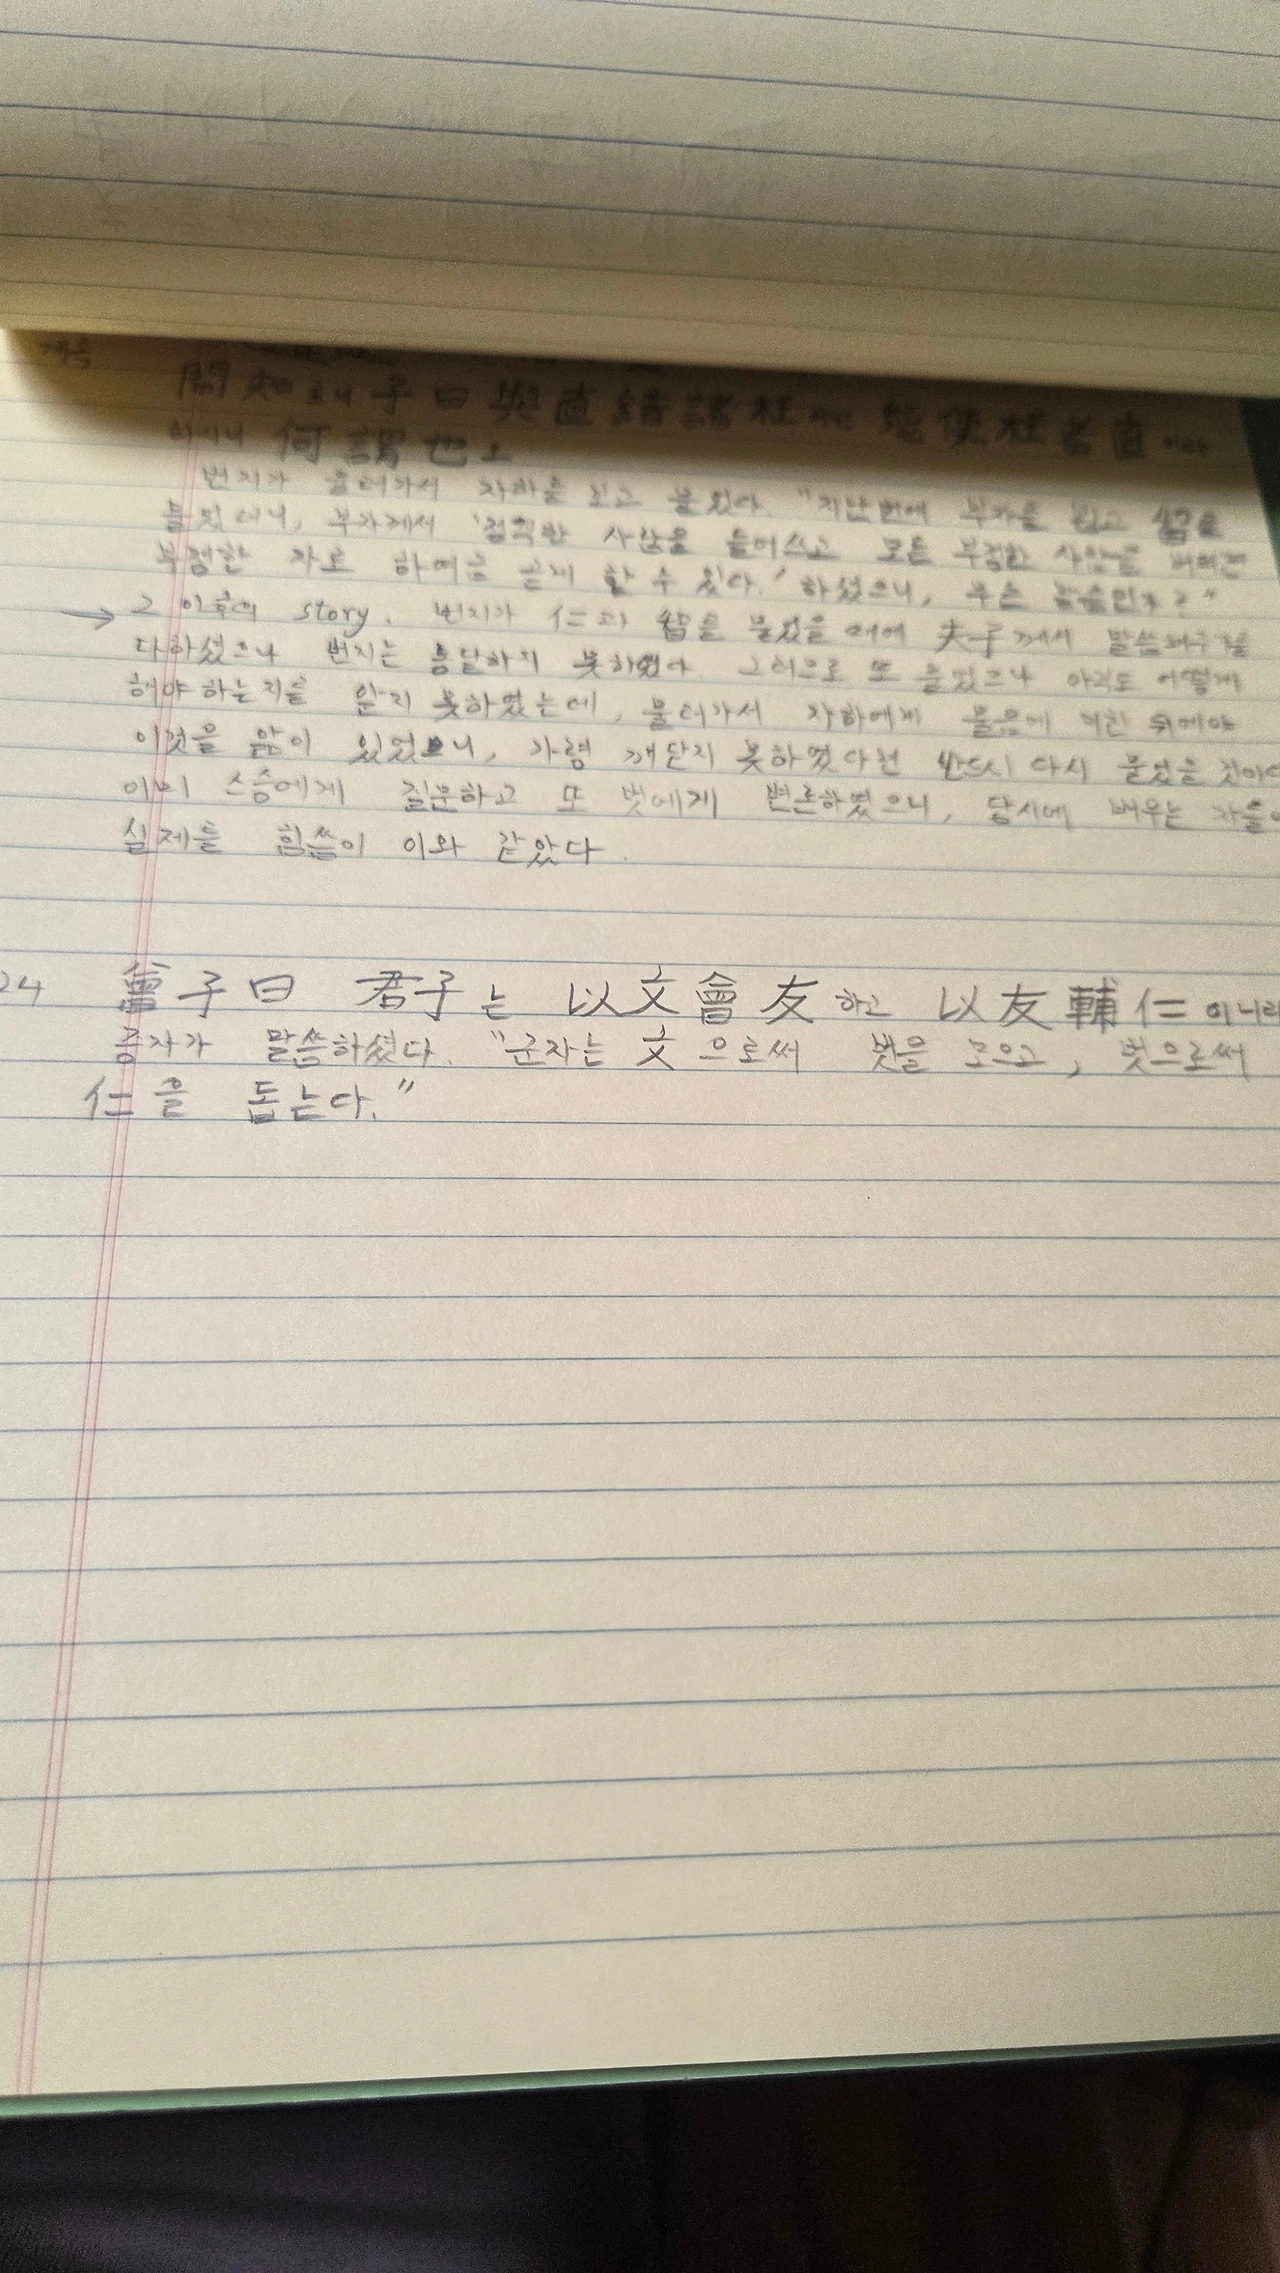 계속
問知호니 子曰 與直錯諸枉이면 能使枉者直이라
하시니 何謂也오
번지가 물러가서 자하를 보고 물었다. "지난번에 부자를 뵙고 智를
물었더니, 부자께서 '정직한 사람을 들어쓰고 모든 부정한 사람을 버리면
부정한 자로 하여금 곧게 할 수 있다.' 하셨으니, 무슨 말씀인가?"
→ 그 이후의 story. 번지가 仁과 智를 물었을 때에 夫子께서 말씀해주기를
다하셨으나 번지는 통달하지 못하였다. 그러므로 또 물었으나 아직도 어떻게
해야 하는지를 알지 못하였는데, 물러가서 자하에게 물음에 미친 뒤에야
이것을 앎이 있었으니, 가령 깨닫지 못하였다면 반드시 다시 물었을 것이다
이미 스승에게 질문하고 또 벗에게 변론하였으니, 당시에 배우는 자들이
실제를 힘씀이 이와 같았다.
24 曾子曰 君子는 以文會友하고 以友輔仁이니라
증자가 말씀하셨다. "군자는 文으로써 벗을 모으고, 벗으로써
仁을 돕는다."